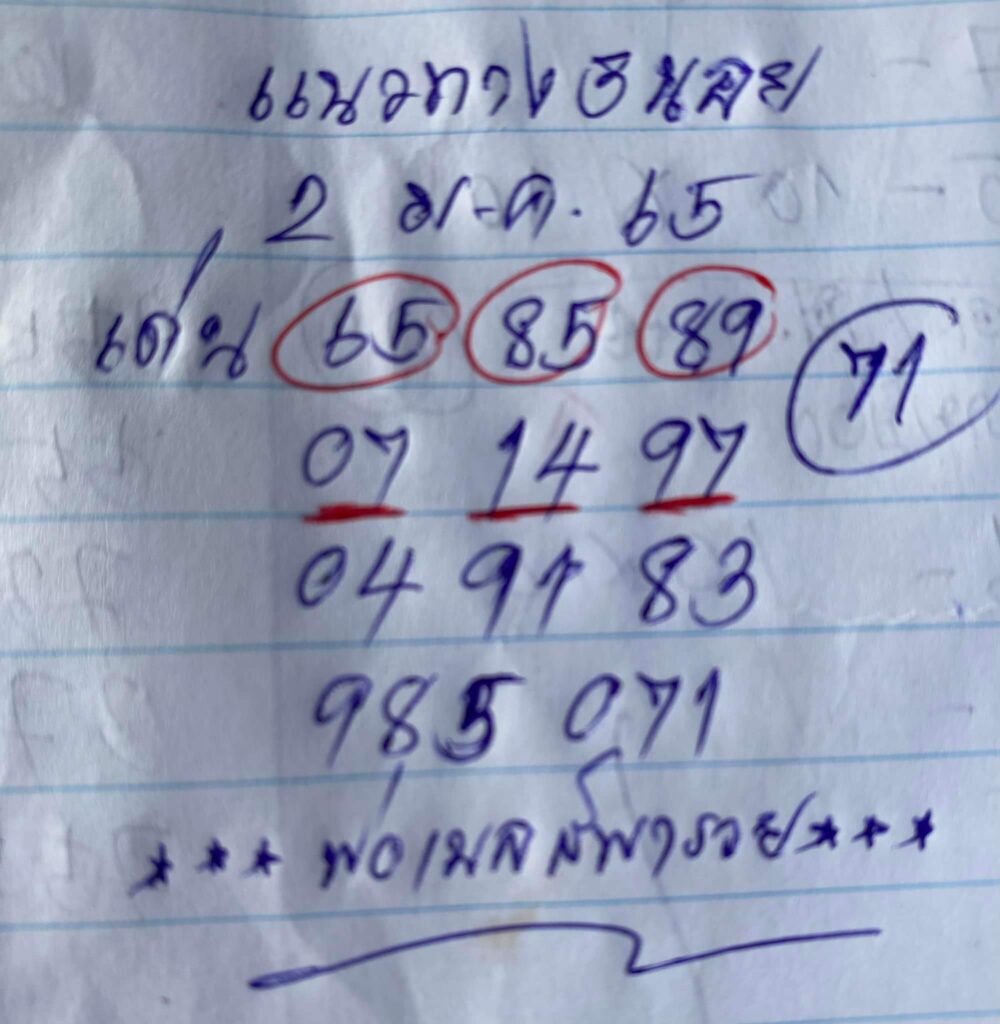 แนวทางฮานอย
2 ม.ค. 65
เด่น 65 85 89 71
07 14 97
04 91 83
985 071
*** พ่อเมล พารวย***